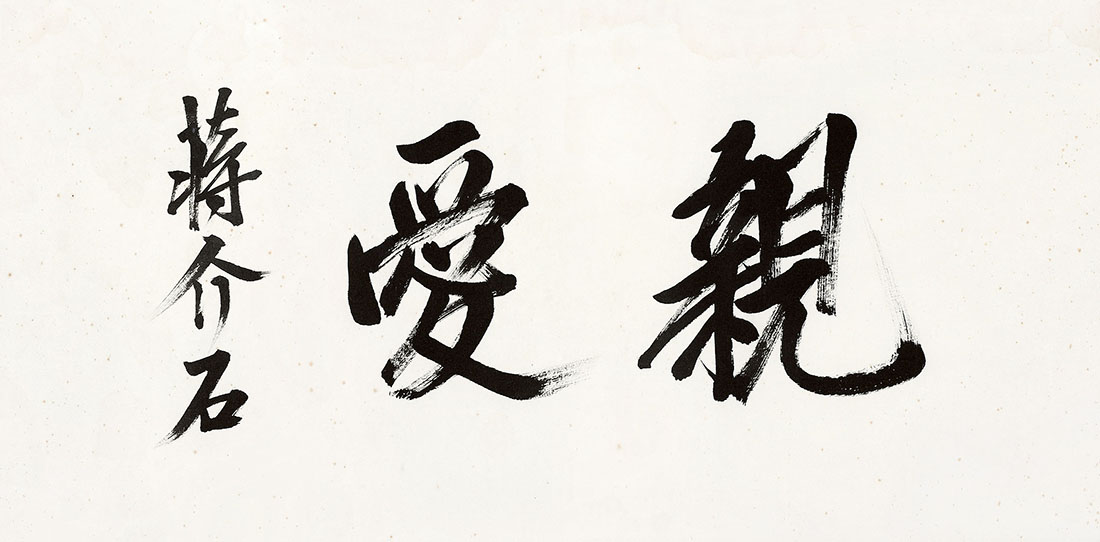 親愛
蔣介石